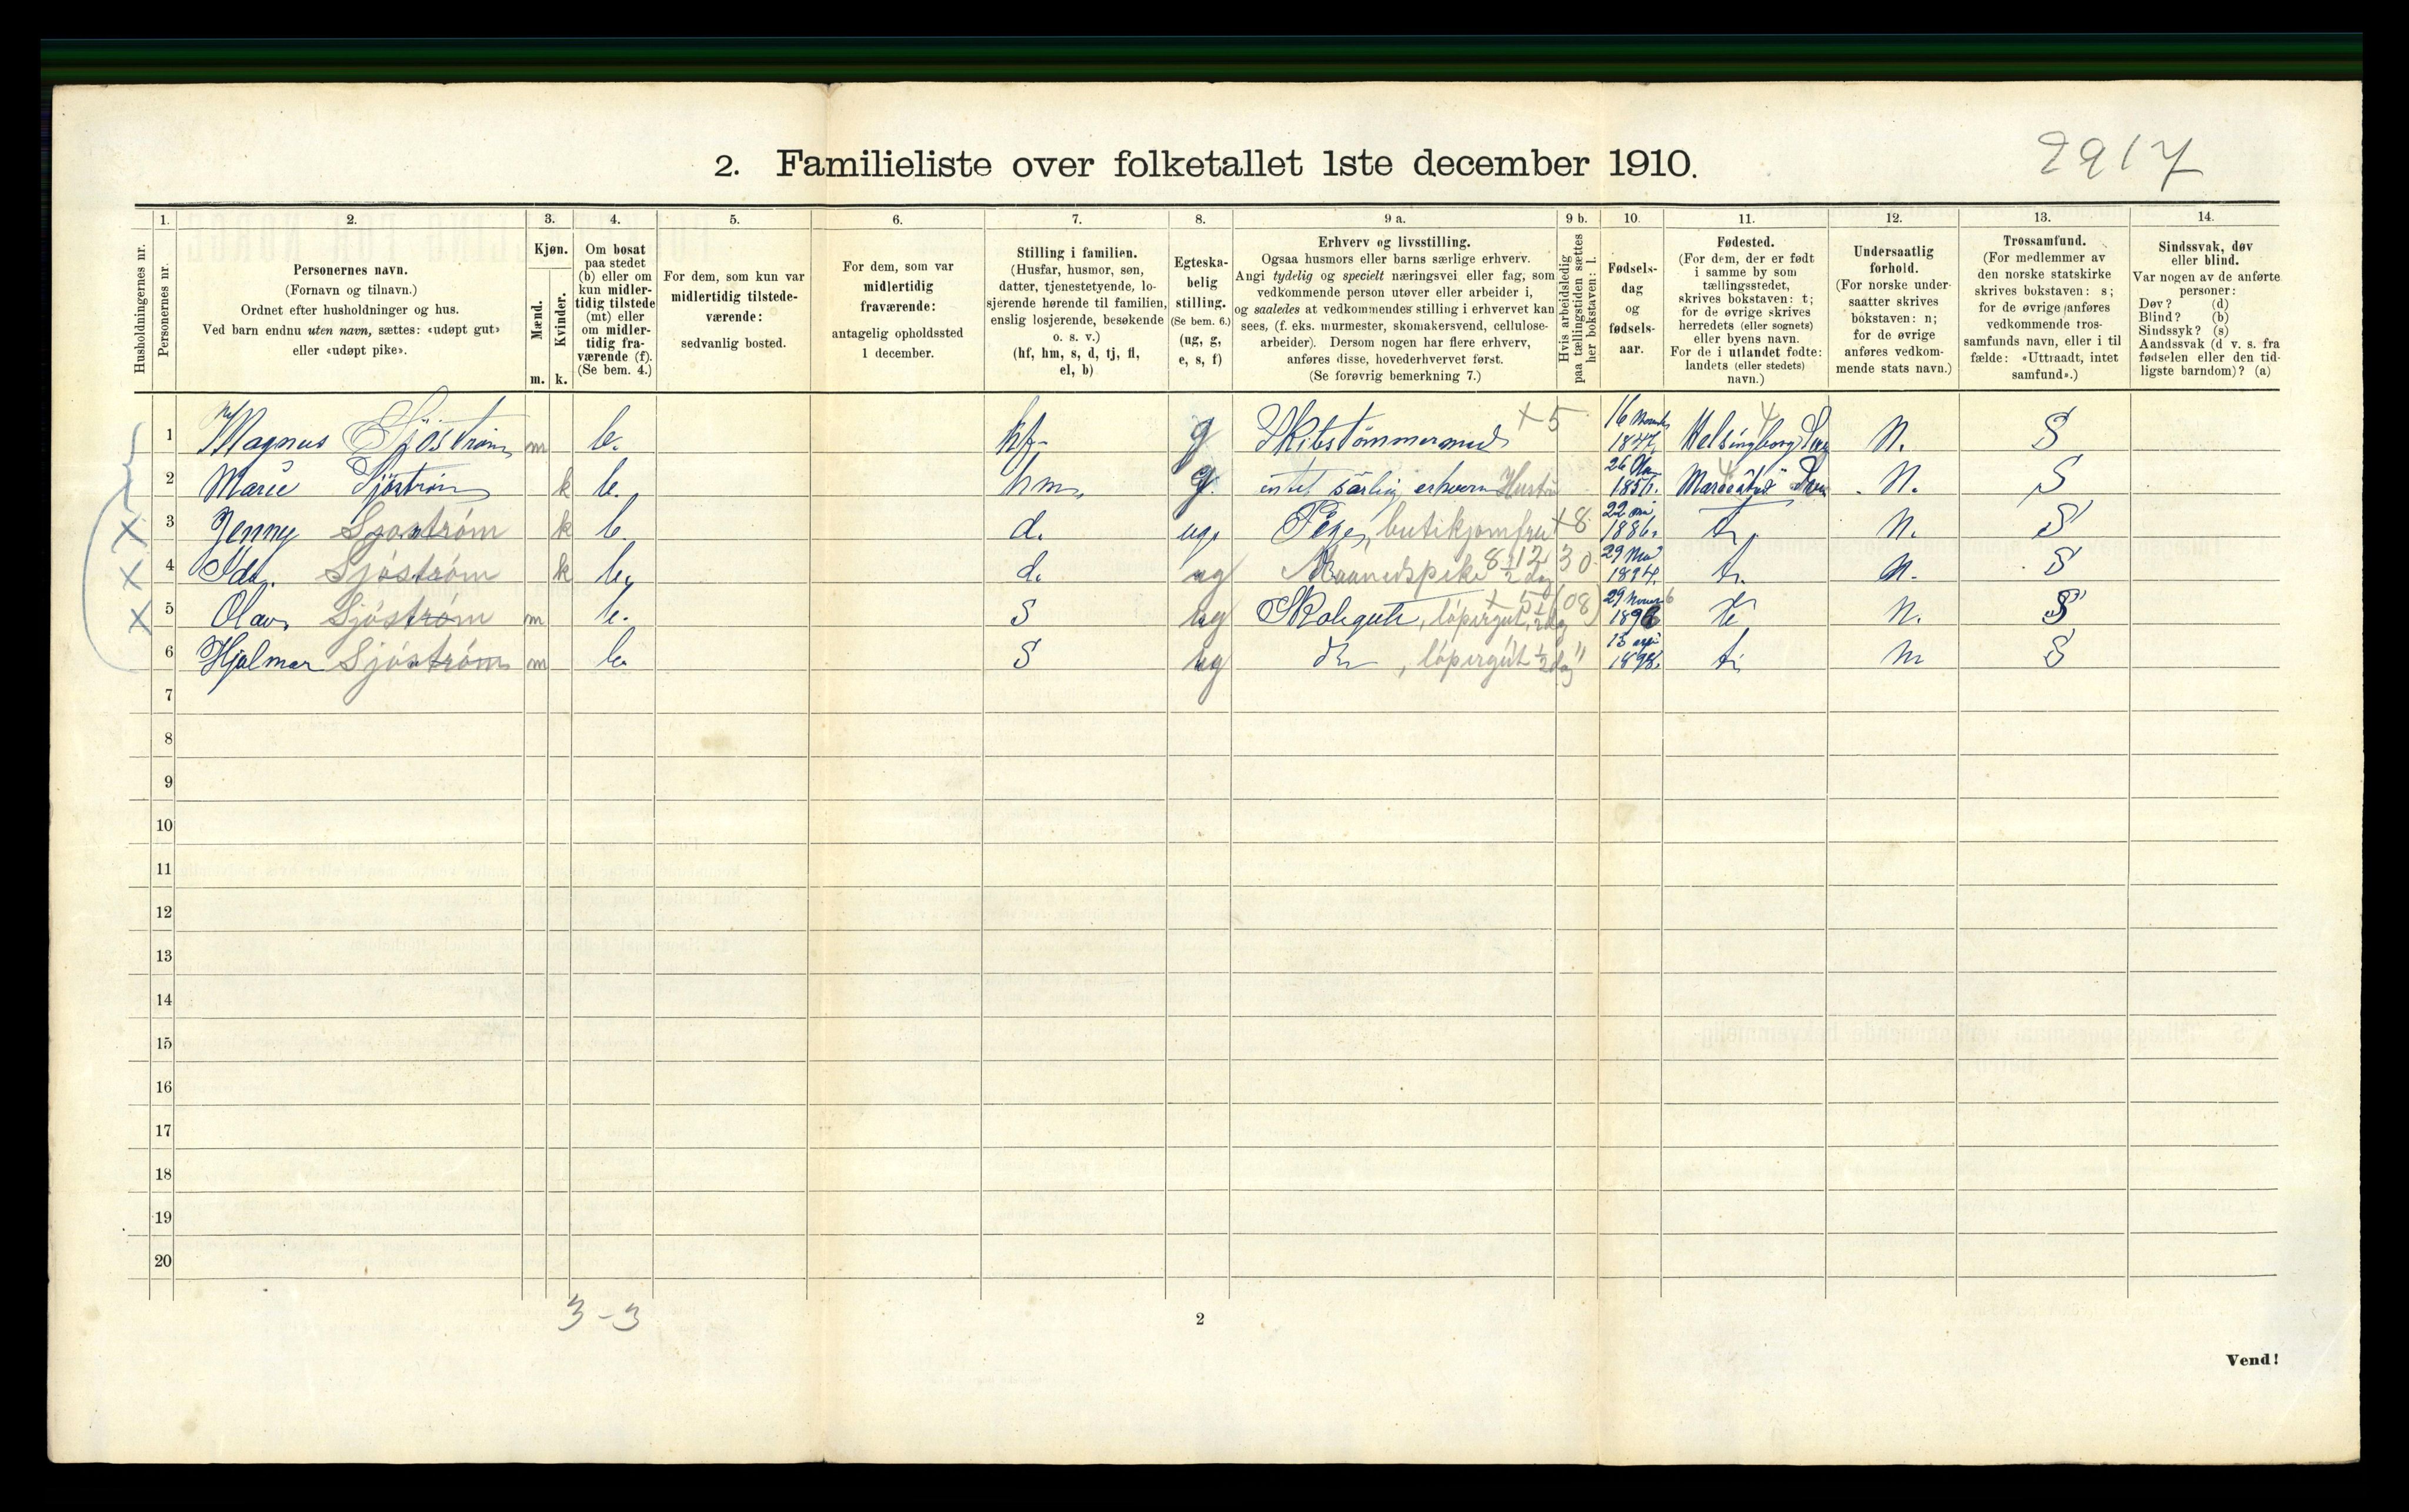 2917
2. Familieliste over folketallet 1ste december 1910.
1. 2. 3. 4. 5. 6. 7. 8. 9 a. 9 b. 10. 11. 12. 13. 14.
Husholdningernes nr.
Personernes nr.
Personernes navn.
(Fornavn og tilnavn.)
Ordnet efter husholdninger og hus.
Ved barn endnu uten navn, sættes: «udøpt gut»
eller «udøpt pike».
Kjøn.
Mænd.
Kvinder.
m. k.
Om bosat
paa stedet
(b) eller om
kun midler-
tidig tilstede
(mt) eller
om midler-
tidig fra-
værende (f).
(Se bem. 4.)
For dem, som kun var
midlertidig tilstede-
værende:
sedvanlig bosted.
For dem, som var
midlertidig
fraværende:
antagelig opholdssted
1 december.
Stilling i familien.
(Husfar, husmor, søn,
datter, tjenestetyende, lo-
sjerende hørende til familien,
enslig losjerende, besøkende
o. s. v.)
(hf, hm, s, d, tj, fl,
el, b)
Egteska-
belig
stilling.
(Se bem. 6.)
(ug, g,
e, s, f)
Erhverv og livsstilling.
Ogsaa husmors eller barns særlige erhverv.
Angi tydelig og specielt næringsvei eller fag, som
vedkommende person utøver eller arbeider i,
og saaledes at vedkommendes stilling i erhvervet kan
sees, (f. eks. murmester, skomakersvend, cellulose-
arbeider). Dersom nogen har flere erhverv,
anføres disse, hovederhvervet først.
(Se forøvrig bemerkning 7.)
Hvis arbeidsledig
paa tællingstiden sættes
her bokstaven: l.
Fødsels-
dag
og
fødsels-
aar.
Fødested.
(For dem, der er født
i samme by som
tællingsstedet,
skrives bokstaven: t;
for de øvrige skrives
herredets (eller sognets)
eller byens navn.
For de i utlandet fødte:
landets (eller stedets)
navn.)
Undersaatlig
forhold.
(For norske under-
saatter skrives
bokstaven: n;
for de øvrige
anføres vedkom-
mende stats navn.)
Trossamfund.
(For medlemmer av
den norske statskirke
skrives bokstaven: s;
for de øvrige anføres
vedkommende tros-
samfunds navn, eller i til
fælde: «Uttraadt, intet
samfund».)
Sindssvak, døv
eller blind.
Var nogen av de anførte
personer:
Døv? (d)
Blind? (b)
Sindssyk? (s)
Aandssvak (d v. s. fra
fødselen eller den tid-
ligste barndom)? (a)
1 Magnus Sjöström m b. hf. g Skibstömmermand +5 16 1847 Helsingborg N. S
2 Marie Sjöström k b. hm. g. intet särlig erhverv Hustru 26 1856. N. S
3 Jenny Sjöström k b. d. ug. butikjomfru +8 22 1886. t. N. S
4 Ida. Sjöström k b. d. ug Maanedspike 8-12 ½ dag 30 29 1894. t. N. S
5 Olav. Sjöström m b. S ug Skolegut, löpergut, ½ dag (08) 29 1896 t N. S
6 Hjalmar Sjöström m b. S ug do, löpergut ½ dag " 13 1898. t. N S
7
8
9
10
11
12
13
14
15
16
17
18
19
20
3-3
2
Vend!